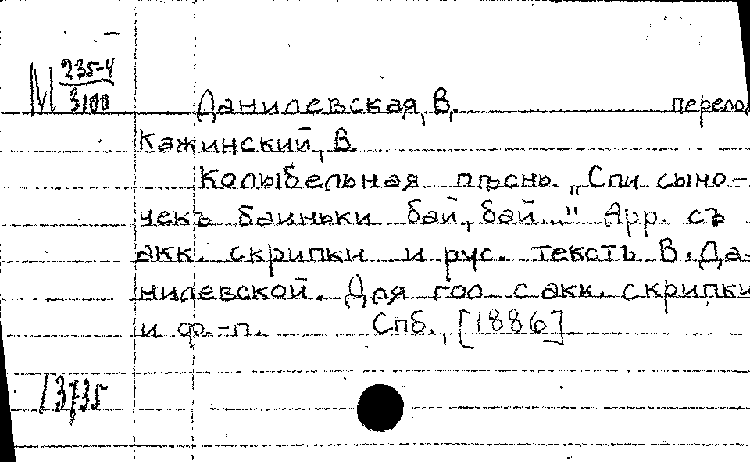 М 235-4
3100
Данилевская, В. перело
Кажинский, В.
Колыбельная пѣснь. „Спи сыно-
чекъ баиньки бай, бай..." Арр. съ
акк. скрипки и рус. текстъ В. Да-
нилевской. Для гол. с акк. скрипки
и ф.-п. Спб., [1886]
13735